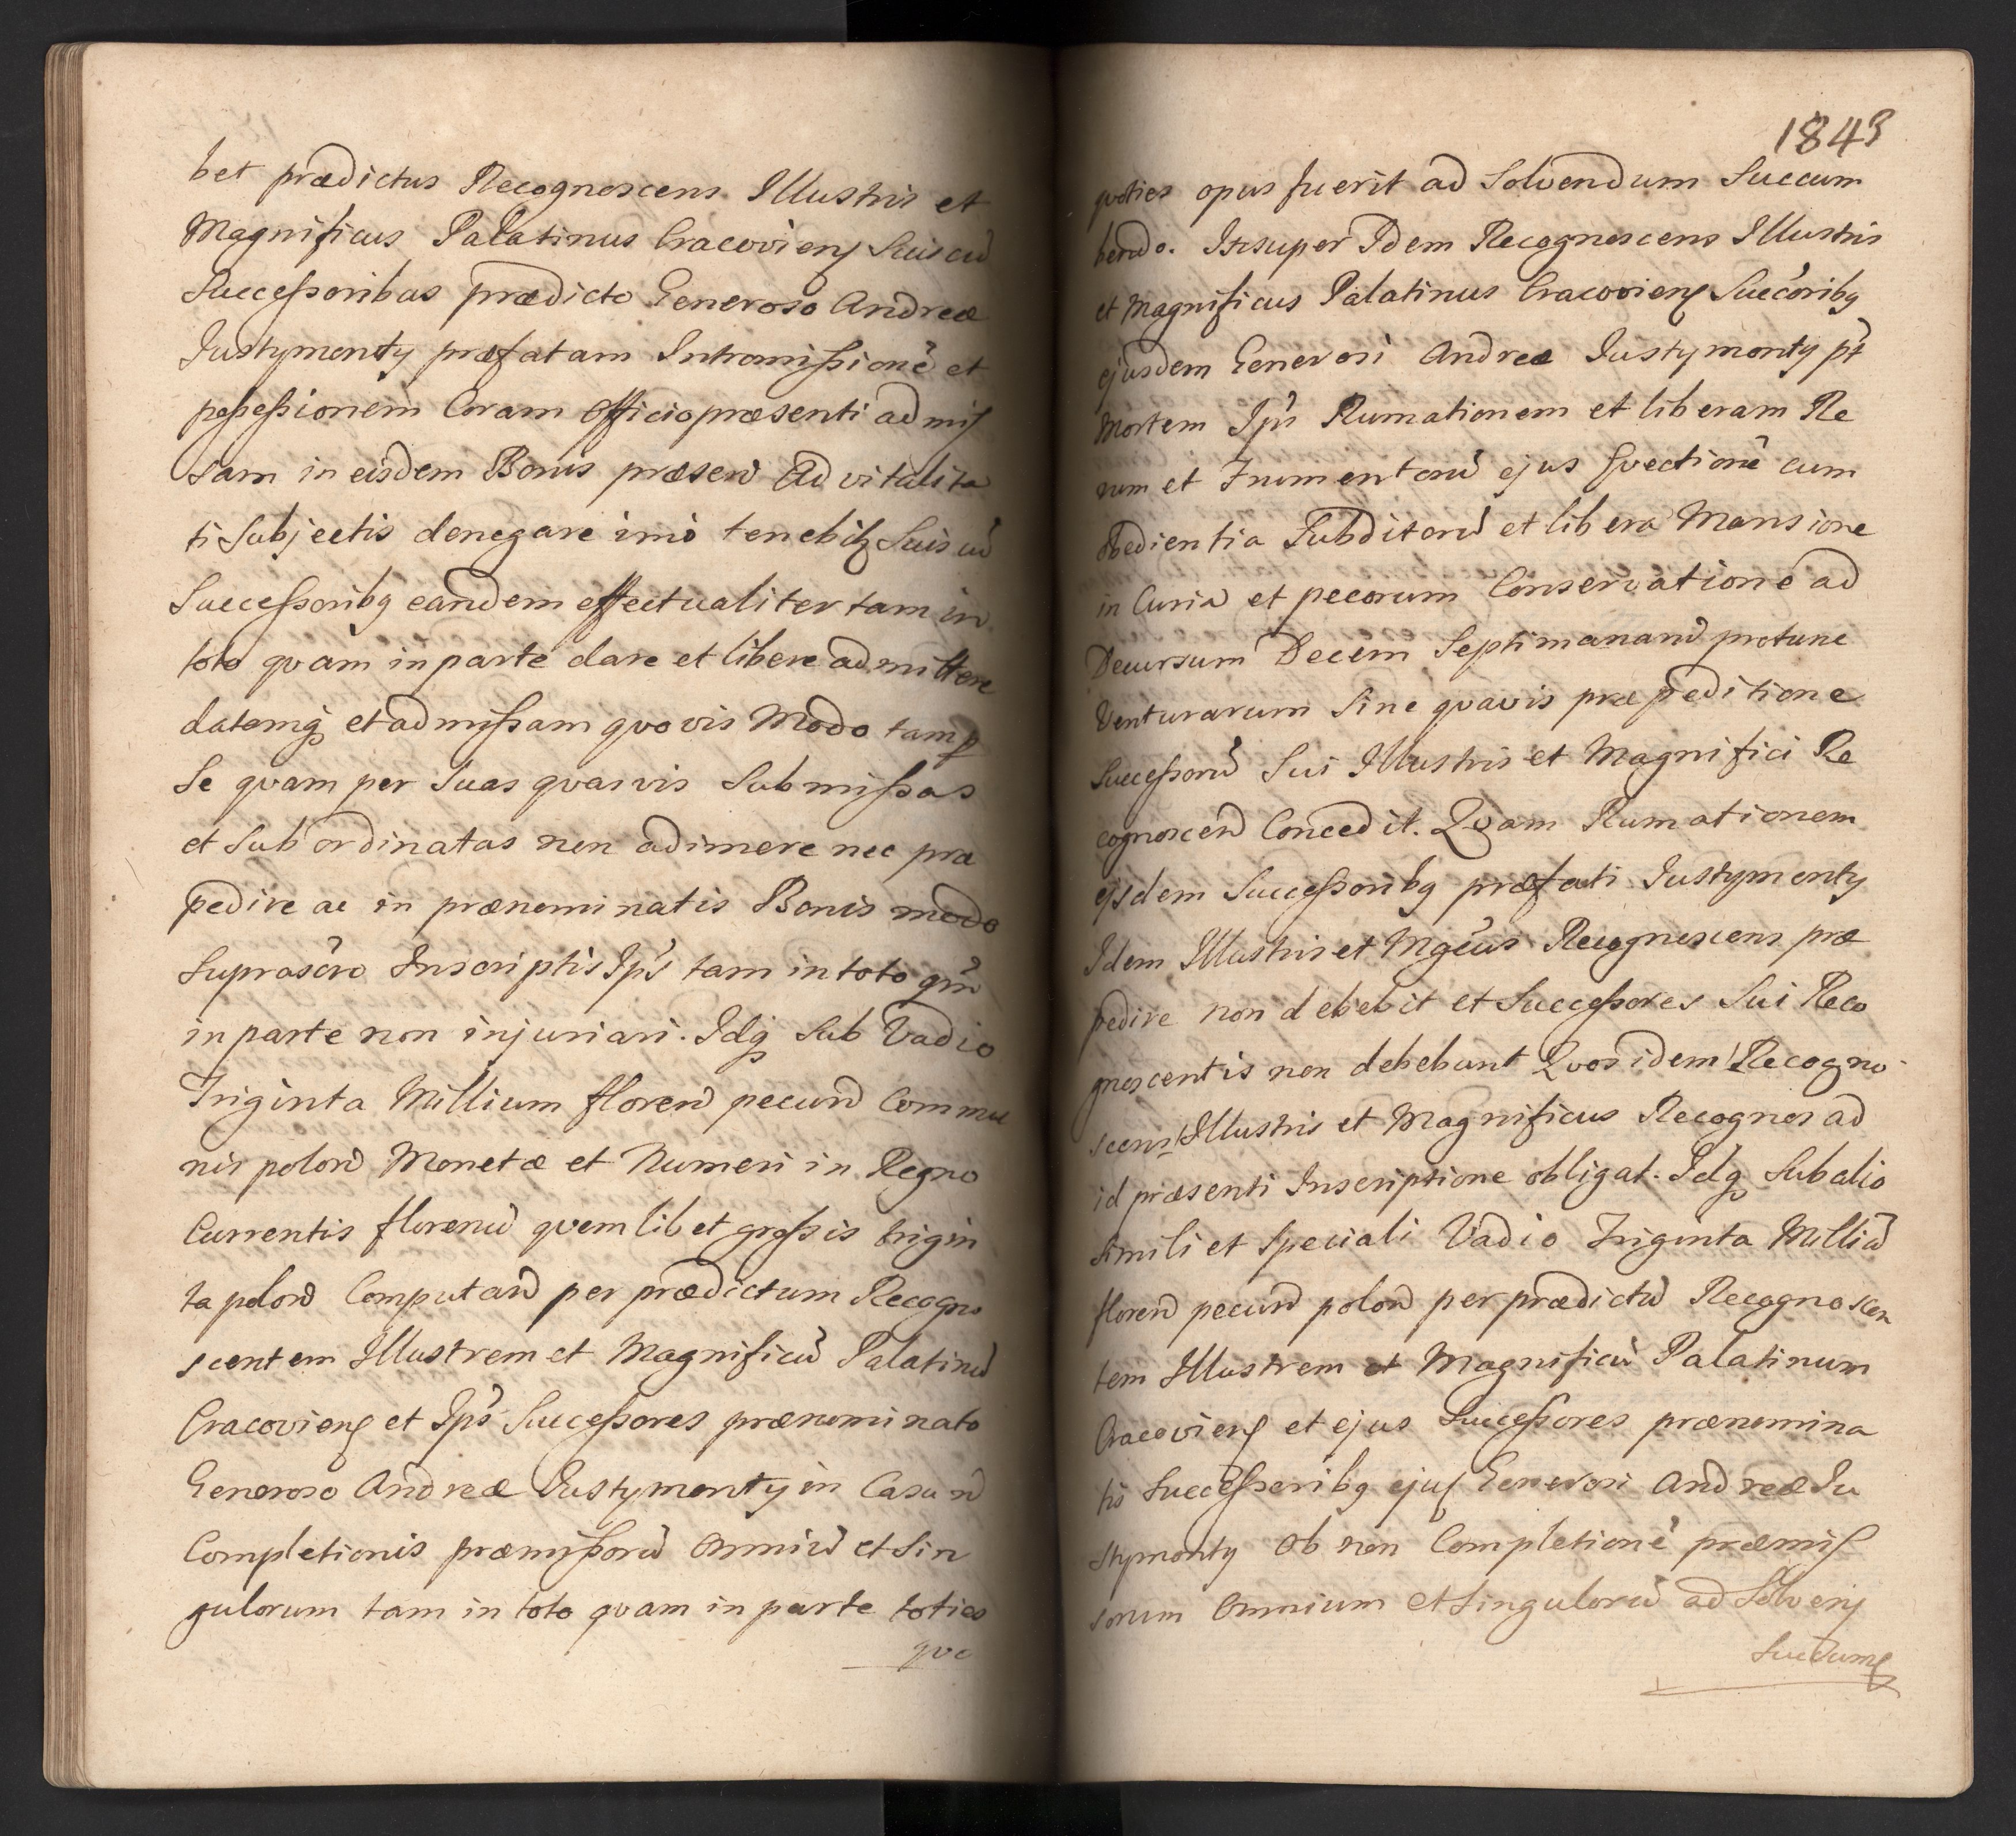 bet prædictus Recognoscens Illustris et
Magnificus Palatinus Cracovieñ Suis cũ
Successoribus prædicto Generoso Andreæ
Justymonty præfatam Intromissionẽ et
possessionem Coram Officio præsenti admis
sam in eisdem Bonis præsenũ Advitalita
ti Subjectis denegare imò tenebitur Suis cũ
Successoribq eandem effectualiter tam in
toto qvàm in parte dare et libere admittere
datamq et admissam qvovis Modo tam p
Se qvam per Suas qvasvis Submissas
et Subordinatas non adimere nec præ
pedire ac in prænominatis Bonis modo
Suprascro Inscriptis Ips̃ tam in toto qm̃
in parte non injuriari. Idq Sub Vadio
Triginta Millium florenũ pecunũ Commu
nis polonũ Monetæ et Numeri in Regno
Currentis florenũ qvemlibet grossis trigin
ta polonũ Computanũ per prædictum Recogno
scentem Illustrem et Magnificũ Palatinũ
Cracovieñ et Ips̃ Successores prænominato
Generoso Andreæ Justymonty in Casu ñ
Completionis præmissorũ Omniũ et Sin
gulorum tam in toto qvam in parte toties
qvo
1843
qvoties opus fuerit ad Solvendum Succum
bendo. Insuper Idem Recognoscens Illustris
et Magnificus Palatinus Cracovieñ Succoribq
ejusdem Generosi Andreæ Justymonty pt
Mortem Ips̃ Rumationem et liberam Re
rum et Frumentorũ ejus Evectionẽ cum
obedientia Subditorũ et libera Mansione
in Curia et pecorum Conservationẽ ad
Decursum Decem Septimanarũ protunc
Venturarum Sine qvavis præpeditione
Successorũ Sui Illustris et Magnifici Re
cognoscenũ Concedit. Qvam Rumationem
ejsdem Successoribq præfati Justymonty
Idem Illustris et Mgcus Recognoscens præ
pedire non debebit et Successores Sui Reco
gnoscentis non debebunt Qvos idem Recogno
scens Illustris et Magnificus Recognos ad
id præsenti Inscriptione obligat. Idq Sub alio
Simili et Speciali Vadio Triginta Milliũ
florenũ pecunũ polonũ per prædictũ Recognoscen
tem Illustrem et Magnificũ Palatinum
Cracovieñ et ejus Successores prænomina
tis Successoribq ejus Generosi Andreæ Ju
stymonty Ob non Completionẽ præmis
sorum Omnium et Singulorũ ad Solvenũ